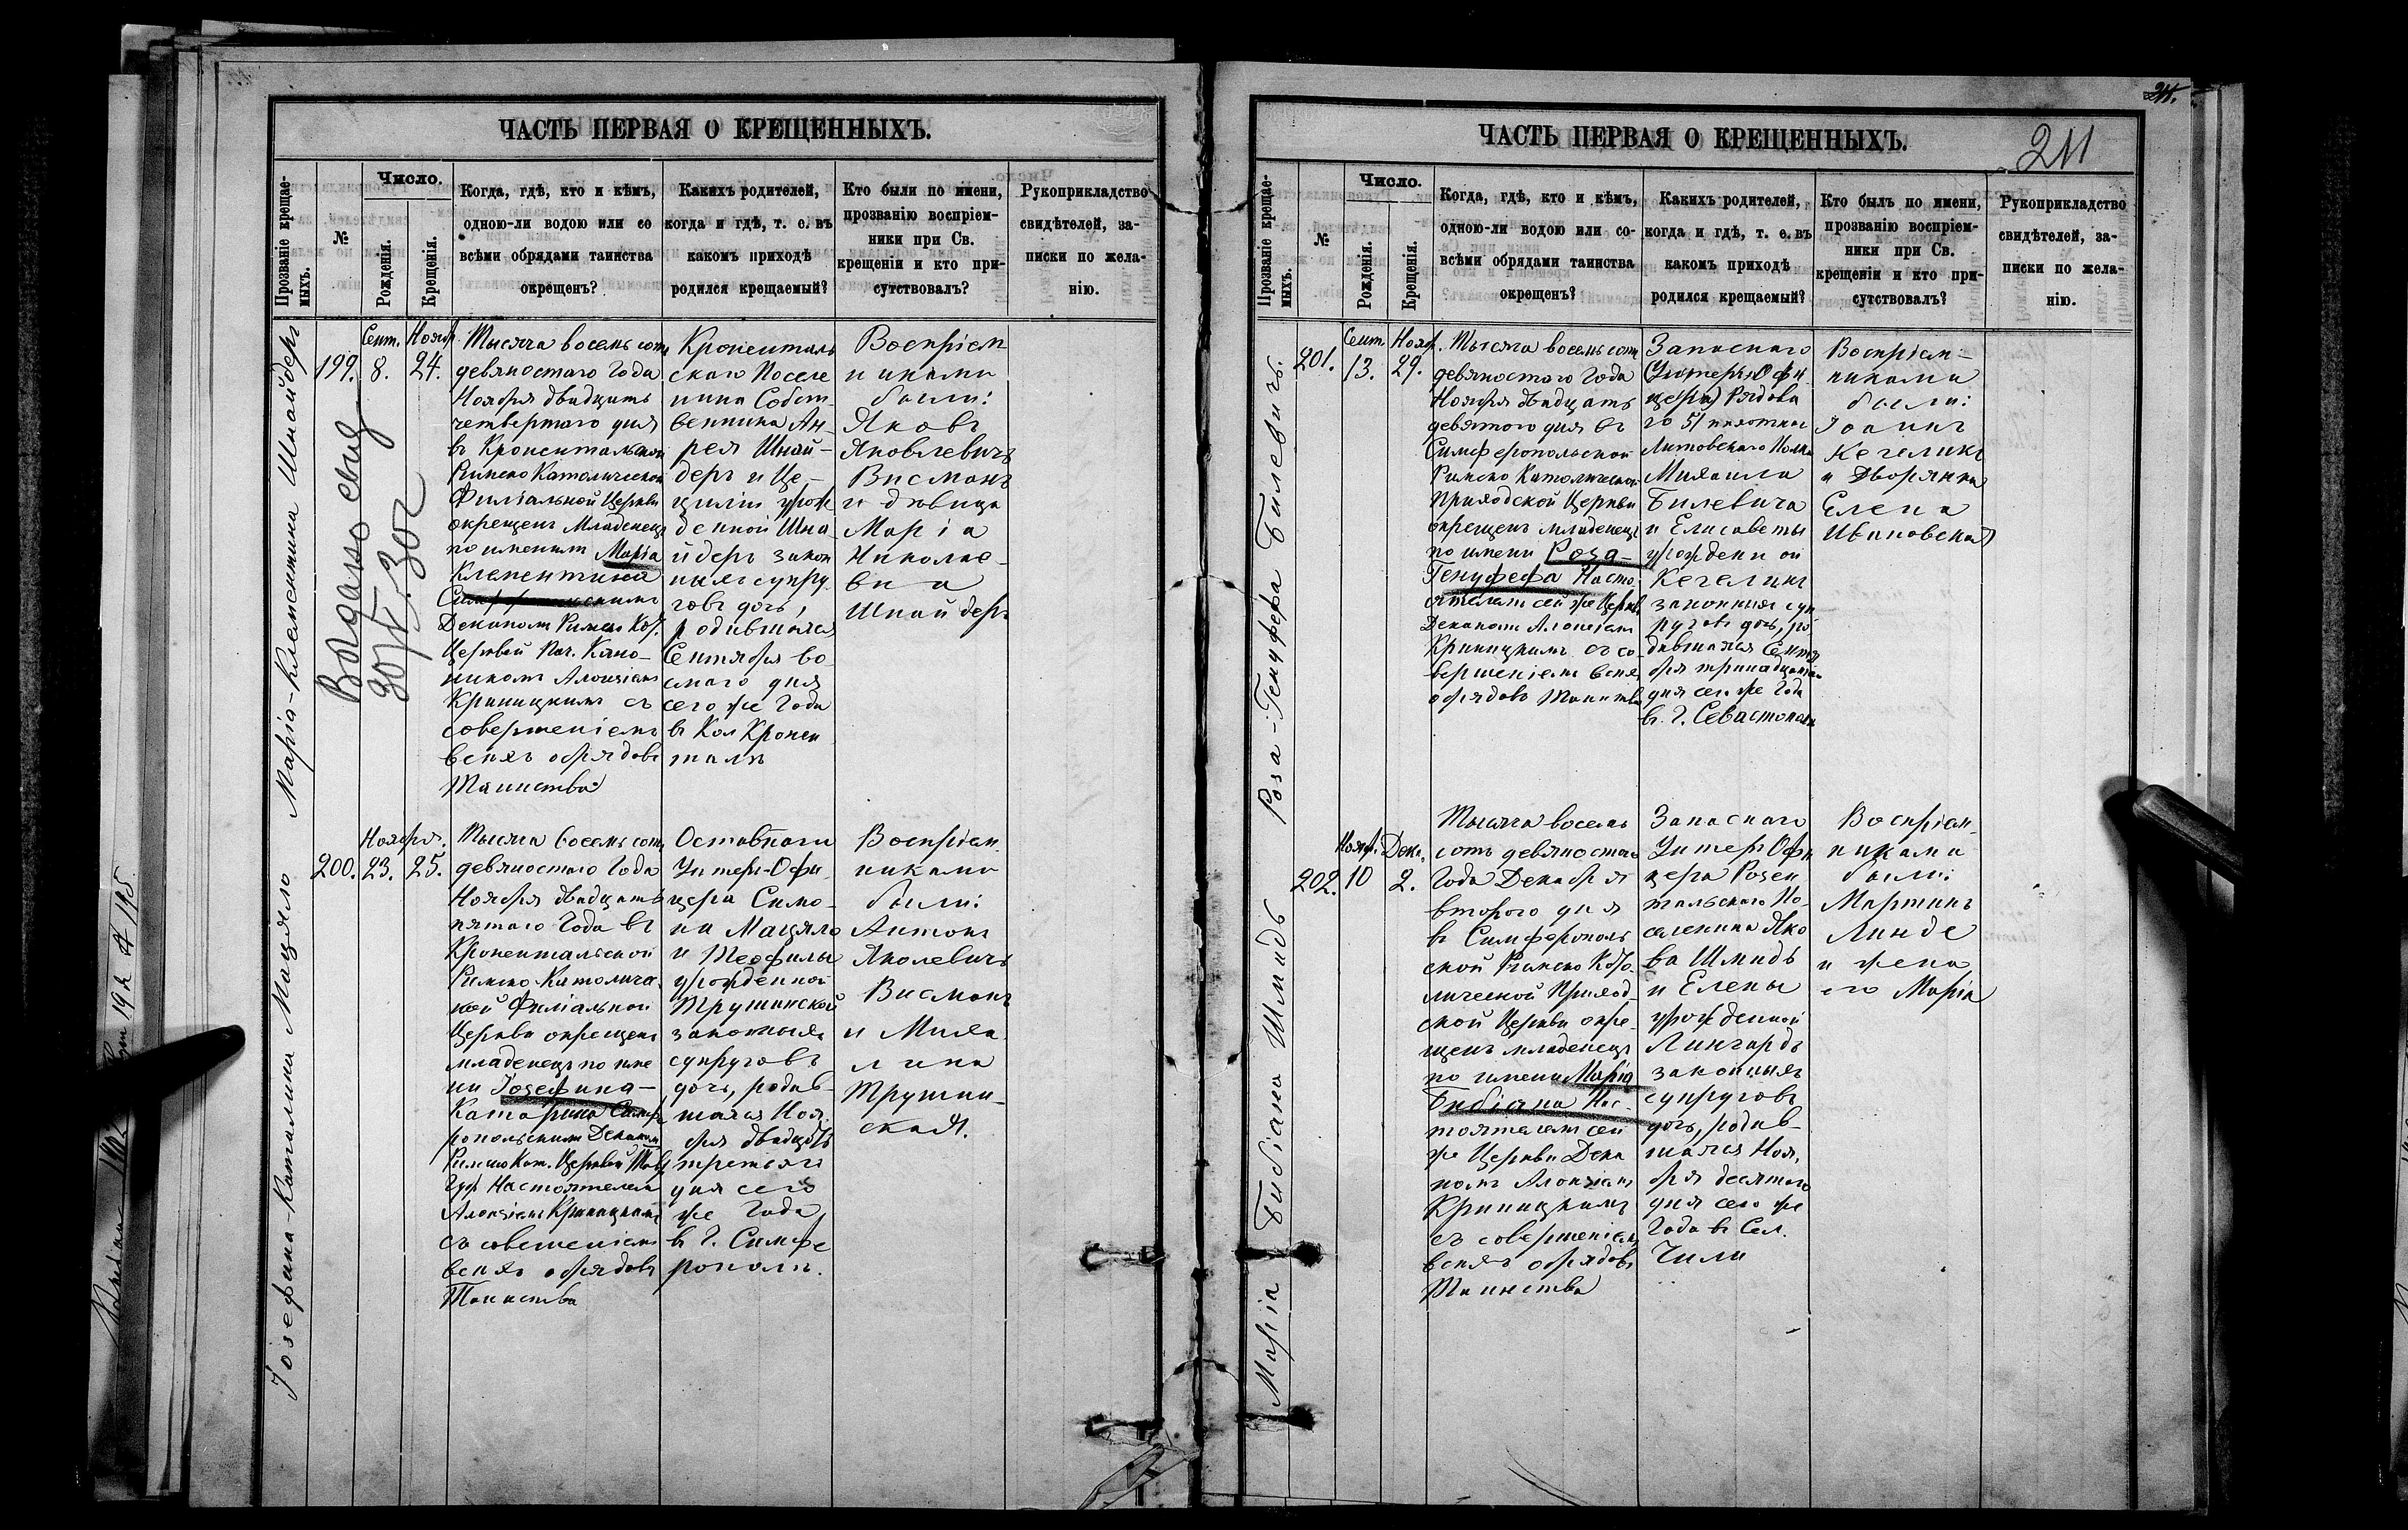 ЧАСТЬ ПЕРВАЯ О КРЕЩЕННЫХЪ.
Прозваніе крещае-
мыхъ.
№
Число.
Рожденія.
Крещенія.
Когда, гдѣ, кто и кѣмъ,
одною-ли водою или со
всѣми обрядами таинства
окрещенъ?
Какихъ родителей,
когда и гдѣ, т. е. въ
какомъ приходѣ
родился крещаемый?
Кто были по имени,
прозванію воспріем-
ники при Св.
крещеніи и кто при-
сутствовалъ?
Рукоприкладство
свидѣтелей, за-
писки по жела-
нію.
Марія-Клементина Шнайдеръ
199.
Сент.
8.
Нояб.
24.
Выдано свид
30/V 30г
Тысяча восемь сотъ
девяностаго Года
Ноября двадцать
четвертаго дня
въ Кронентальской
Римско Католической
Филіальной Церкви
окрещенъ Младенецъ
по имени Марія
Клементина
Деканомъ Римско Кат.
Церквей Поч. Кано-
никомъ Алоизіемъ
Криницкимъ съ
совершеніемъ
всѣхъ обрядовъ
Таинства
Кроненталь
скаго Поселе
нина Собст-
венника Ан-
рея Шнай-
деръ и Це-
циліи урож
денной Шна
йдеръ закон
ныхъ супру
говъ дочь,
родившаяся
Сентября во
смаго дня
сего же Года
въ Кол Кронен
талѣ
Воспріем
никами
были:
Яковъ
Яковлевичъ
Висманъ
и дѣвица
Марія
Николае-
вна
Шнайдеръ
Іозефина-Катарина Мацяло
200.
Ноября.
23.
25.
Тысяча восемь сотъ
девяностаго Года
Ноября двадцать
пятаго Года въ
Кронентальской
Римско Католиче
кой Филіальной
Церкви окрещенъ
младенецъ по име
ни Іозефина-
Катарина Симфе
ропольскимъ Деканомъ
Римско Кат. Церквей Тав.
Губ Настоятелемъ
Алоизіемъ Криницкимъ
съ совешеніемъ
всѣхъ обрядовъ
Таинства
Оставнаго
Унтеръ-Офи
цера Симо-
на Мацяло
и Теофилы
урожденной
Трушинской
законныхъ
супруговъ
дочь, родив-
шаяся Ноя
бря двадцать
третьяго
дня сего
же Года
въ Г. Симфе
рополѣ.
Воспріем
никами
были:
Антонъ
Яколевичъ
Висманъ
и Миха
лина
Трушин-
ская.
211
ЧАСТЬ ПЕРВАЯ О КРЕЩЕННЫХЪ.
Прозваніе крещае-
мыхъ.
№
Число.
Рожденія.
Крещенія.
Когда, гдѣ, кто и кѣмъ,
одною-ли водою или со-
всѣми обрядами таинства
окрещенъ?
Какихъ родителей,
когда и гдѣ, т. е. въ
какомъ приходѣ
родился крещаемый?
Кто былъ по имени,
прозванію воспріем-
ники при Св.
крещеніи и кто при-
сутствовалъ?
Рукоприкладство
свидѣтелей, за-
писки по жела-
нію.
Роза-Генуфефа Билевичъ.
201.
Сент
13.
Нояб.
29.
Тысяча восемь сотъ
девяностаго Года
Ноября двадцать
девятого дня въ
Симферопольской
Римско Католической
Приходской Церкви
окрещенъ младенецъ
по имени Роза-
Генуфефа Насто
ятелемъ сей же Церкви
Деканомъ Алоизіемъ
Криницкимъ съ со
вершеніемъ всѣхъ
обрядовъ Таинства
Запаснаго
(Унтеръ Офи
цера) Рядова
го 51 пехотнаго
Литовскаго Полка
Михаила
Билевича
и Елисаветы
урожденной
Кегелинъ
законныхъ суп
руговъ дочь, ро
дившаяся Сентя
бря тринадцатаго
дня сего же Года
въ Г. Севастополѣ
Воспріем-
никами
были:
Іоаннъ
Кегелинъ
и Дворянка
Елена
Ивановская
Марія Бибіана Шмидъ
202.
Нояб.
10
Дека.
2.
Тысяча восемь
сотъ девяностаго
Года Декабря
второго дня
въ Симферополь
ской Римско Като
лической Приход
ской Церкви окре-
щенъ младенецъ
по имени Марія
Бибіана Нас-
тоятелемъ сей
же Церкви Дека
номъ Алоизіемъ
Криницкимъ
съ совершеніемъ
всѣхъ обрядовъ
Таинства
Запаснаго
Унтеръ Офи
цера Розен
тальскаго По-
селенина Яко
ва Шмидъ
и Елены
урожденной
Лингардъ
законныхъ
супруговъ
дочь, родив-
шаяся Ноя,
бря десятаго
дня сего же
Года въ Сел.
Чили
Воспріем-
никами
были:
Мартинъ
Линде
и жена
его Марія